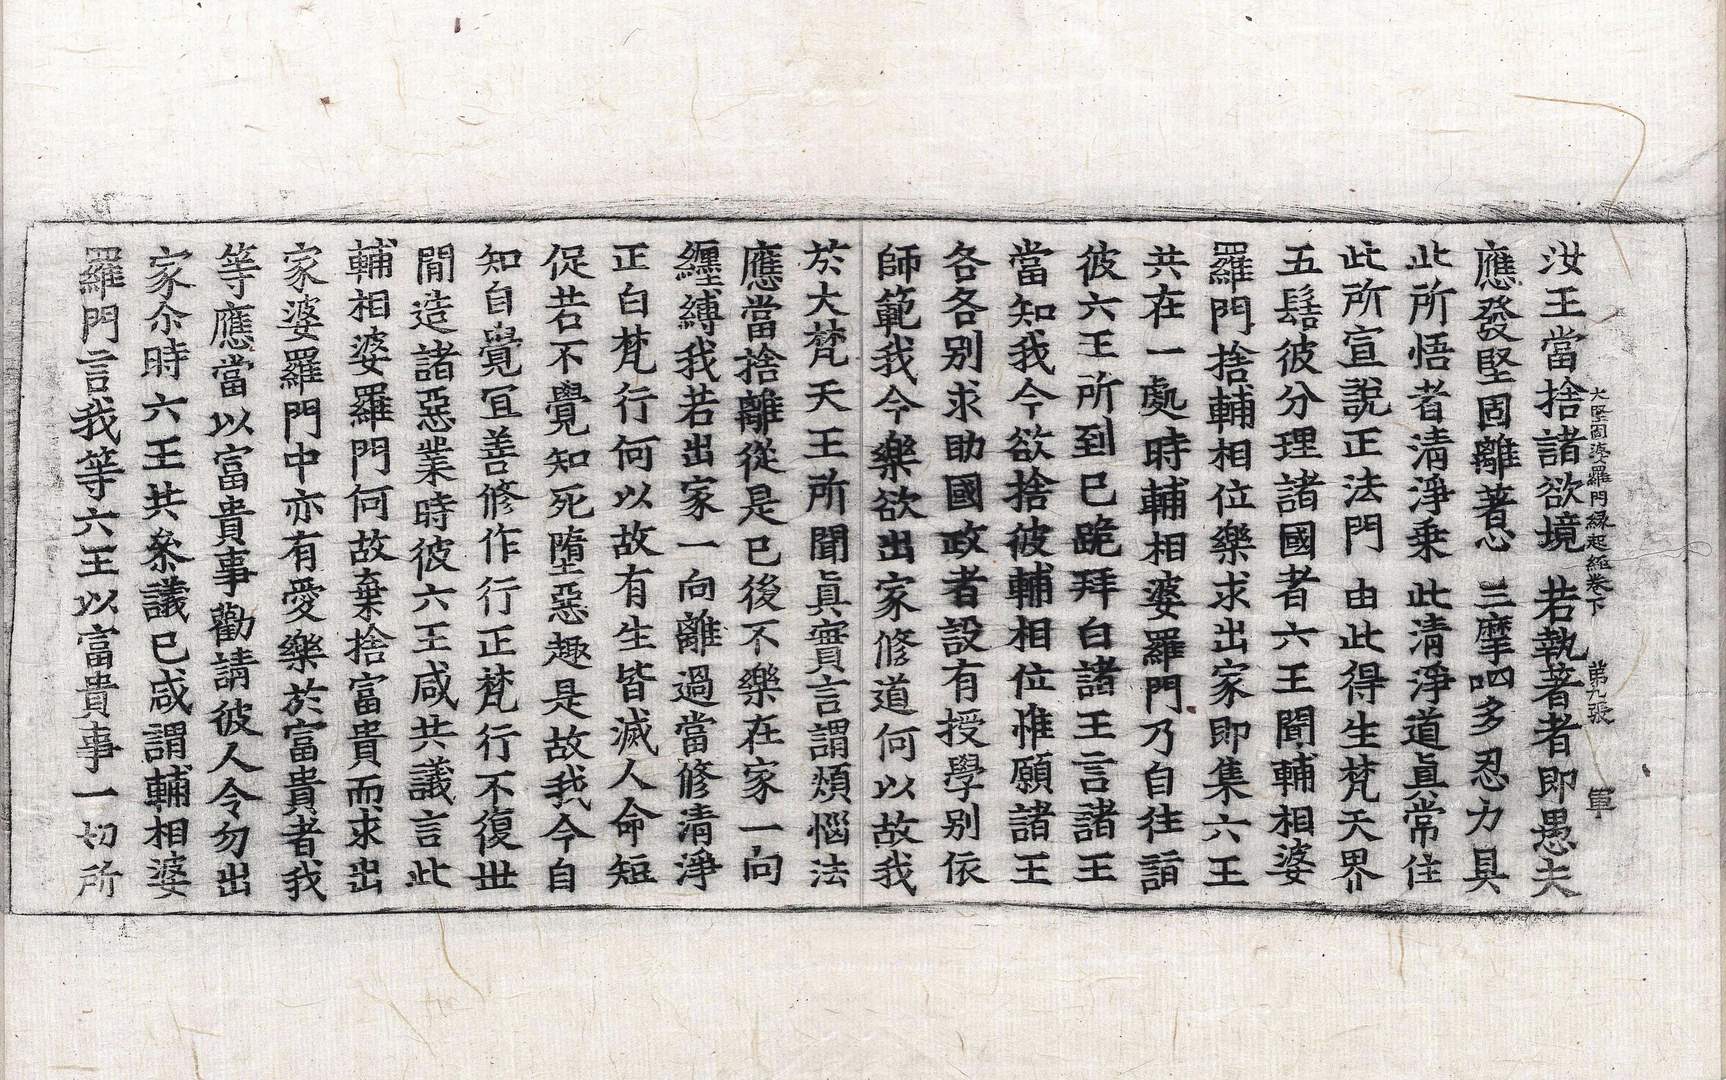 大堅固婆羅門緣起經卷下　第九張　軍
汝王當捨諸欲境　若執著者即愚夫
應發堅固離著心　三摩呬多忍力具
此所悟者清淨乗　此清淨道眞常住
此所宣說正法門　由此得生梵天界
五髻彼分理諸國者六王聞輔相婆
羅門捨輔相位樂求出家即集六王
共在一處時輔相婆羅門乃自往詣
彼六王所到已跪拜白諸王言諸王
當知我今欲捨彼輔相位惟願諸王
各各別求助國政者設有授學別依
師範我今樂欲出家修道何以故我
於大梵天王所聞眞實言謂煩惱法
應當捨離從是已後不樂在家一向
纏縛我若出家一向離過當修清淨
正白梵行何以故有生皆滅人命短
促若不覺知死墮惡趣是故我今自
知自覺冝善修作行正梵行不復世
閒造諸惡業時彼六王咸共議言此
輔相婆羅門何故棄捨富貴而求出
家婆羅門中亦有愛樂於富貴者我
等應當以富貴事勸請彼人令勿出
家尒時六王共叅議已咸謂輔相婆
羅門言我等六王以富貴事一切所